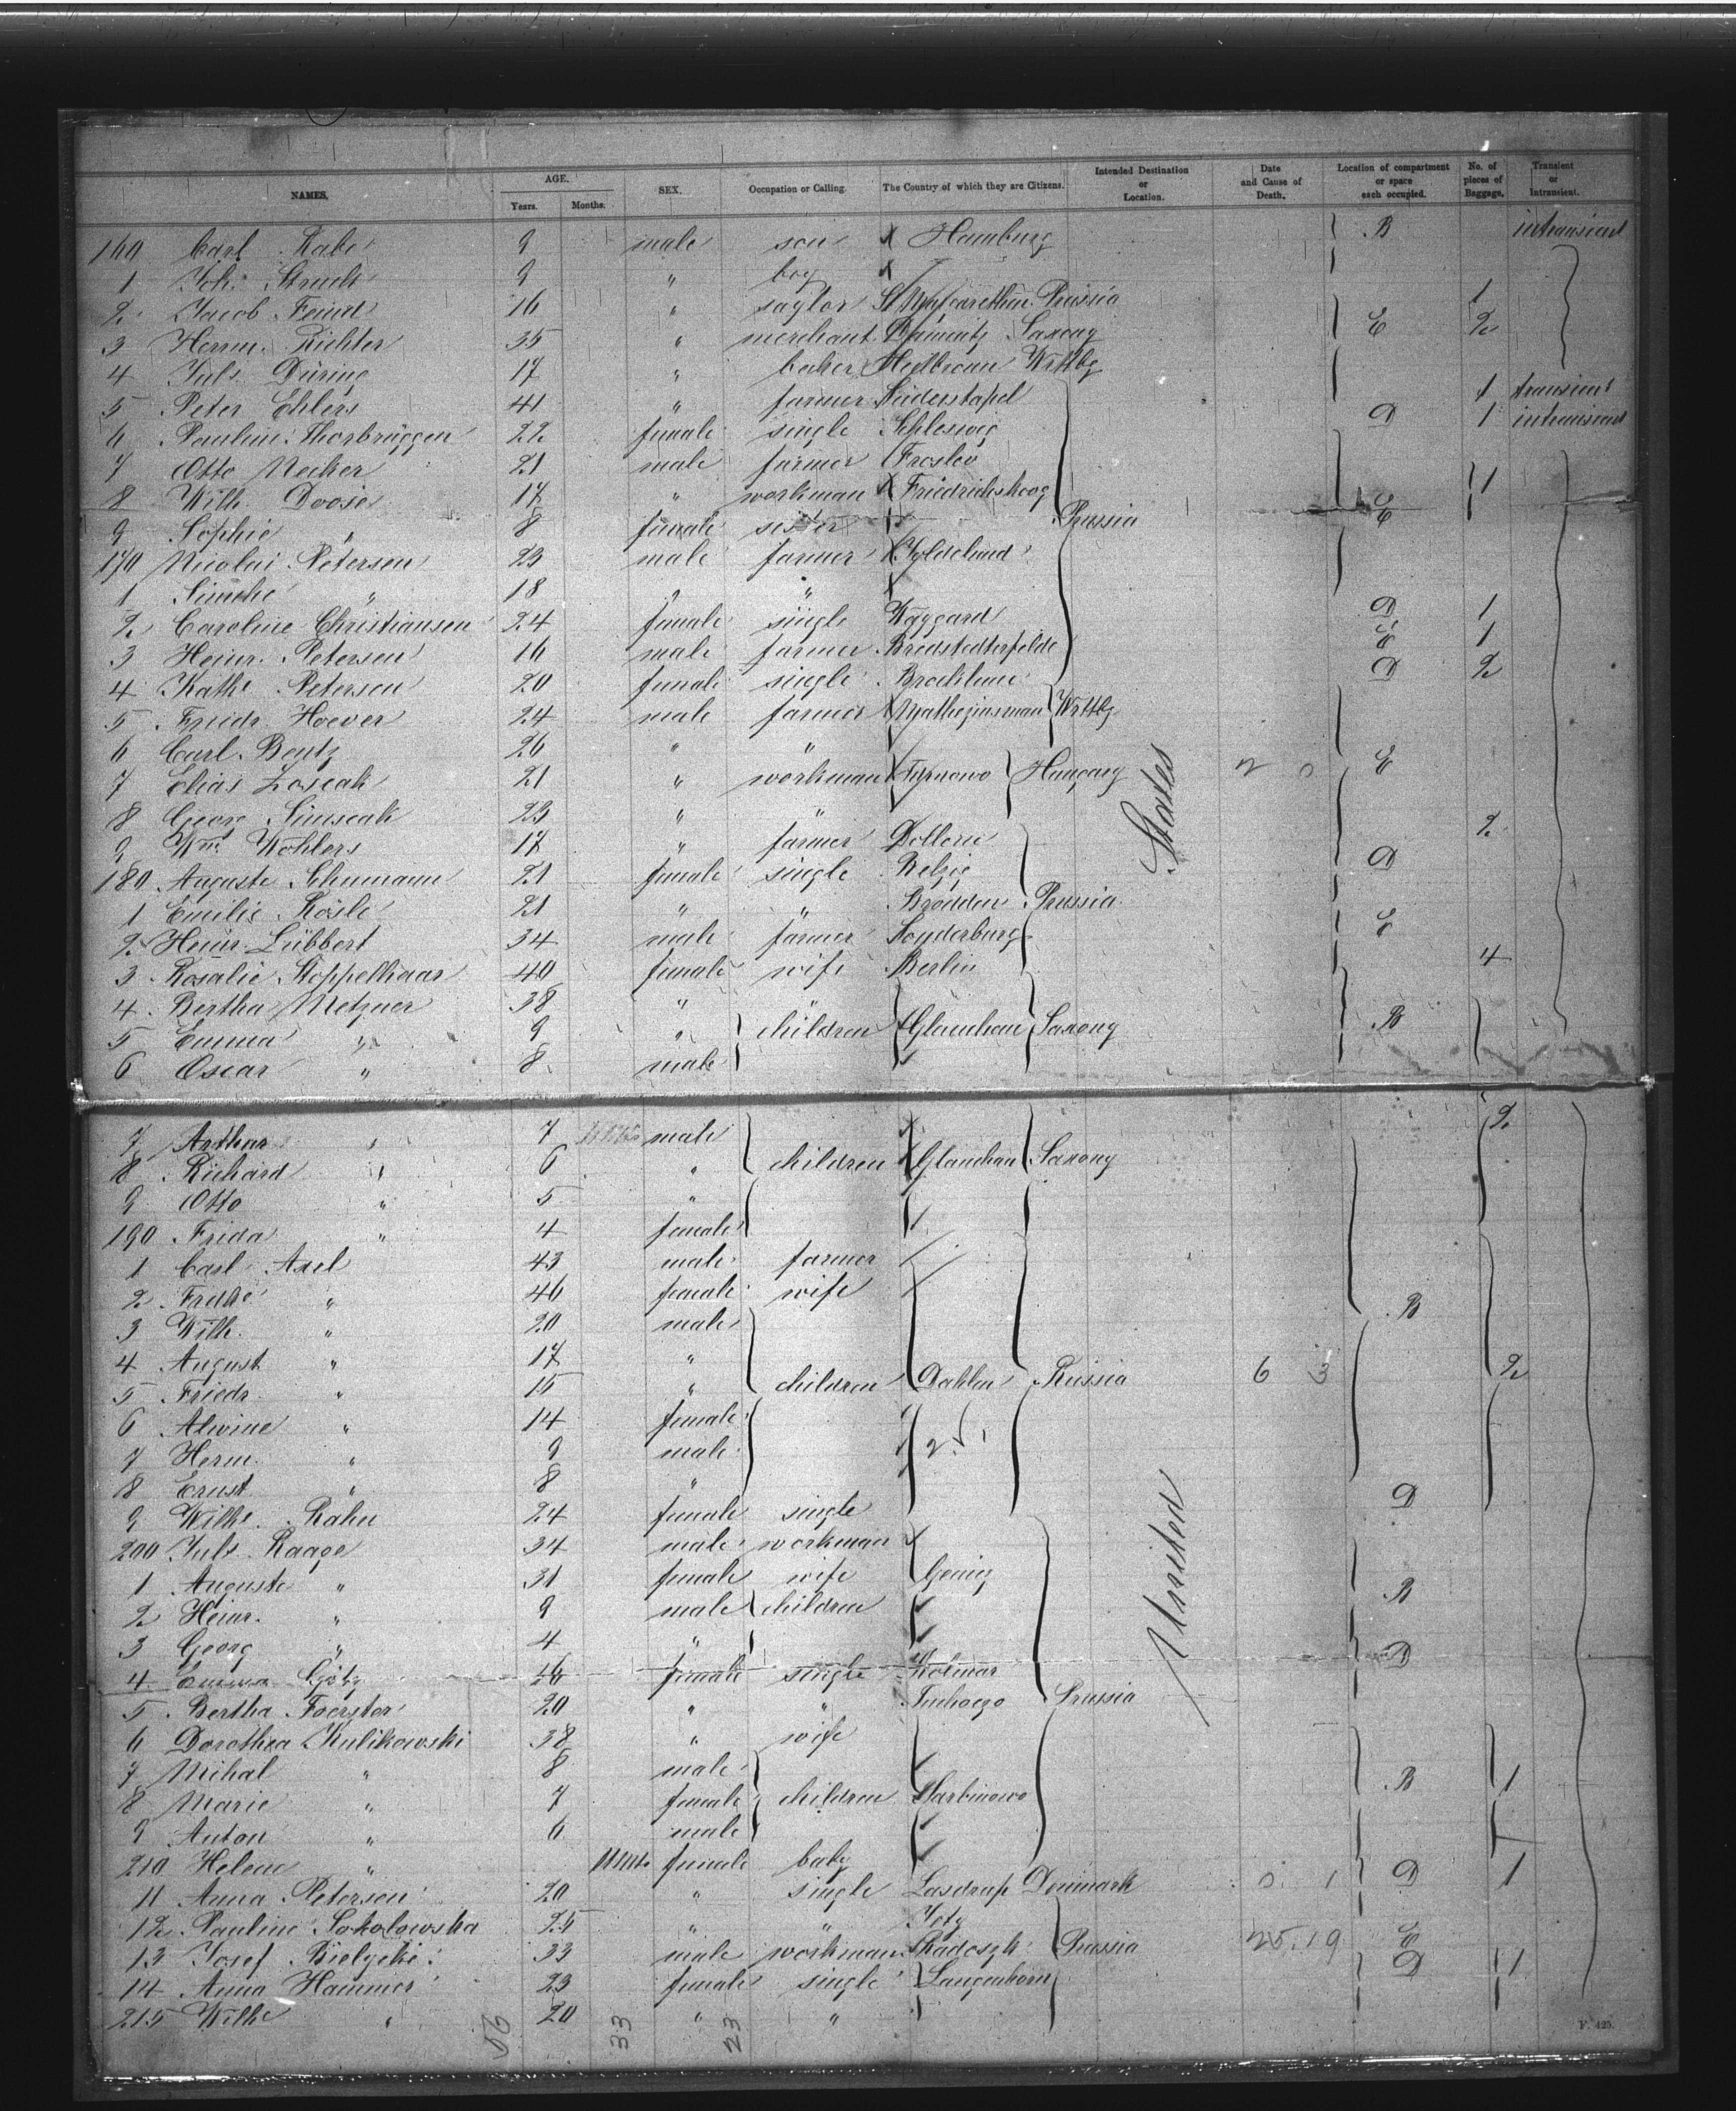 NAMES. AGE. Years. Months. SEX. Occupation or Calling. The Country of which they are Citizens. Intended Destination or Location. Date and Cause of Death. Location of compartment or space each occupied. No. of pieces of Baggage. Transient or Intransient.
160 Carl Rabe 9 male son Hamburg B intransient
1 Joh. 9 " boy
2 Jacob Feind 16 " saylor St Margarethen Prussia 1
3 Herm. Richter 35 " merchant Saxony E 2
4 Juls. Düring 17 " baker Heilbronn Wrttbg
5 Peter Ehlers 41 " farmer Süderstapel 1 transient
6 Pauline Thorbrüggen 22 female single Schleswig D 1 intransient
7 Otto Necker 21 male farmer Froslev 1
8 Wilh. Doose 17 " workman Friedrichskoog E
9 Sophie " 8 female sister Prussia
170 Nicolai Petersen 23 male farmer Joldelund
1 " 18 " "
2 Caroline Christiansen 24 female single Waggard D 1
3 Heinr. Petersen 16 male farmer Bredstedterfelde E 1
4 Kathe Petersen 20 female single D 2
5 Friedr. Hoever 24 male farmer Wrttbg
6 Carl Bentz 26 " "
7 Elias 21 " workman Hungary 2 0 E
8 Georg Simscak 23 " "
9 Wm. Wohlers 17 " farmer Dollern 2
180 Auguste Schumann 21 female single Belzig D
1 Emilie Rösle 21 " " Brodden Prussia
2 Heinr. Lübbert 34 male farmer Sonderburg E
3 Rosalie Stoppelhaar 40 female wife Berlin 4
4 Bertha Metzner 38 " "
5 Emma " 9 " children Glauchau Saxony B
6 Oscar " 8 male
States
7 Arthur " 7 male 2
8 Richard " 6 " children Glauchau Saxony
9 Otto " 5 "
190 Frida " 4 female
1 Carl Axel 43 male farmer
2 Fredke " 46 female wife B
3 Wilh. " 20 male
4 August " 17 "
5 Friedr. " 15 " children Dahlen Russia 6 3 2
6 Alwine " 14 female
7 Herm. " 9 male 2
8 Ernst " 8 "
9 Wilhe. Rahn 24 female single D
200 Juls. Raage 34 male workman
1 Auguste " 31 female wife
2 Heinr. " 9 male children B
3 Georg " 4 "
4 Emma Götz 26 female single Kolmar D
5 Bertha Foerster 20 " " Prussia
6 Dorothea Kulikowski 38 " wife
7 Mihal " 8 male
8 Marie " 7 female children Sarbinowo B 1
9 Anton " 6 male
210 Helene " female baby
11 Anna Petersen 20 " single Denmark 0 1 D 1
12 Pauline Sokolowska 25 " "
13 Josef 33 male workman Radoszk Prussia 25.19 E
14 Anna Hammer 23 female single Langenhorn D 1
215 Wilhe " 20 " "
United
56 33 23
F. 425.